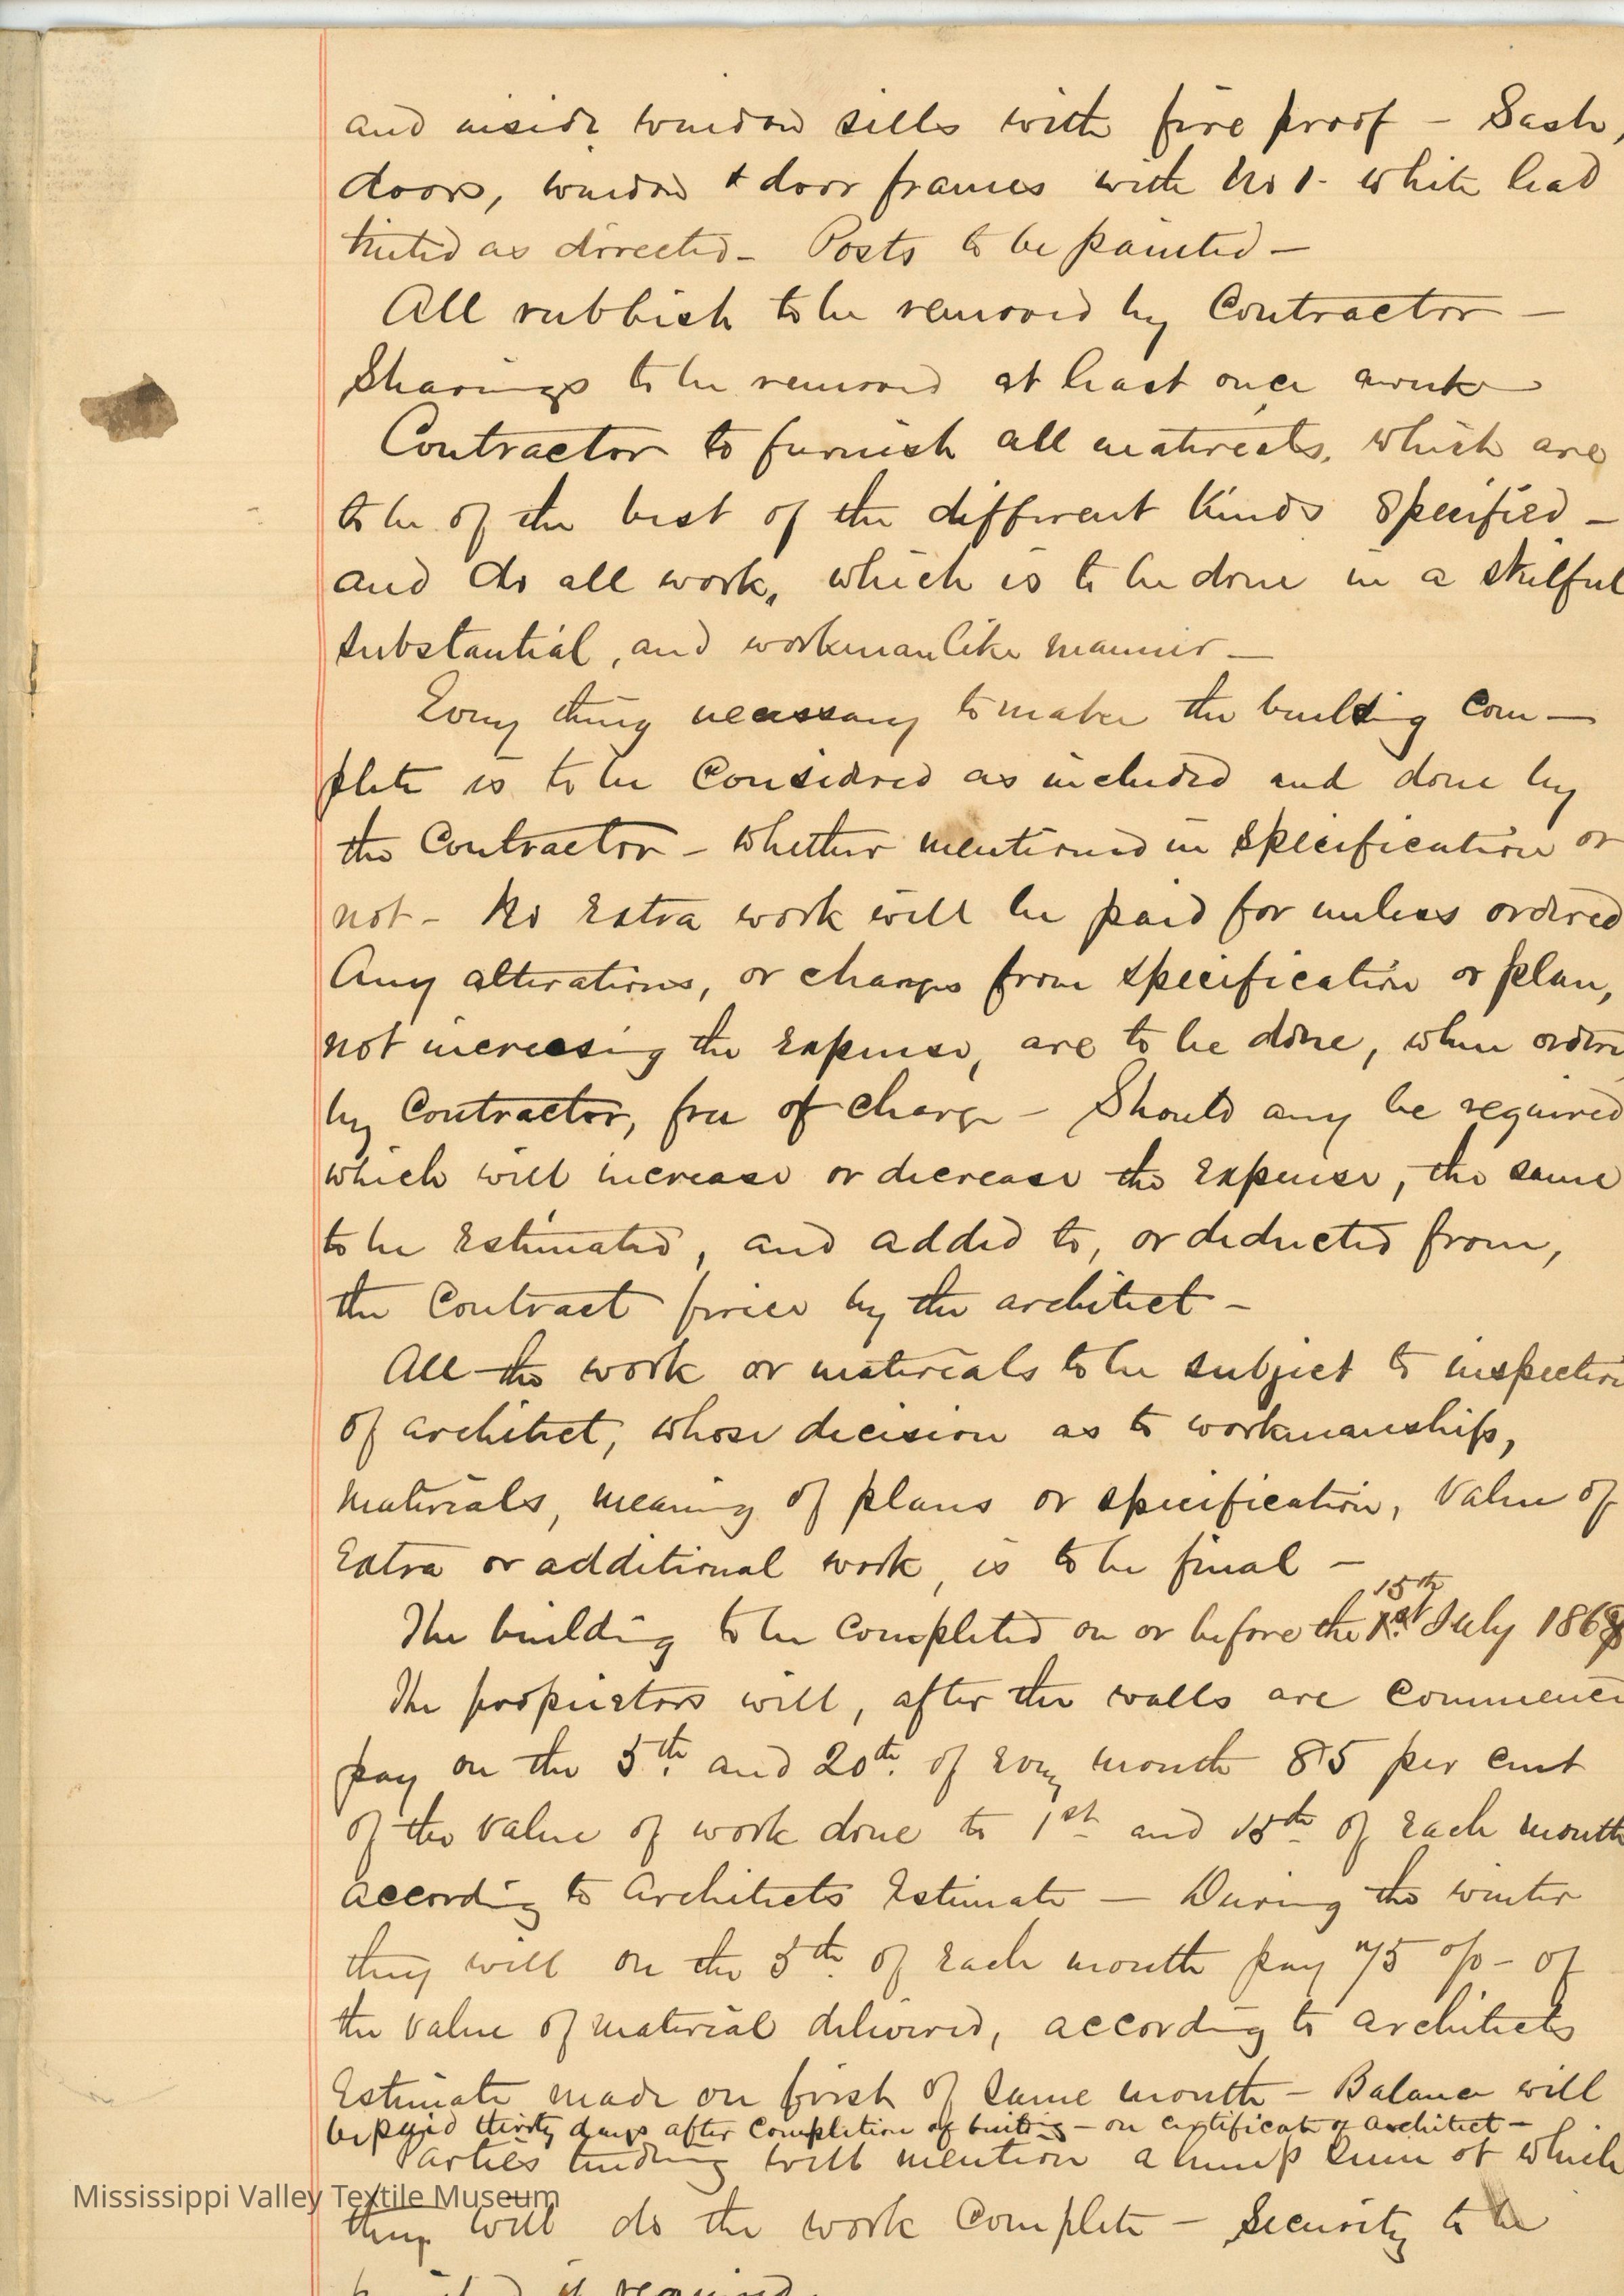 and inside window sills with fire proof – Sash,
doors, window & door frames with No 1. white lead
tinted as directed – Posts to be painted –
All rubbish to be removed by Contractor –
Shavings to be removed at least once a week
Contractor to furnish all materials, which are
to be of the best of the different Kinds Specified –
and do all work, which is to be done in a skilful
substantial, and workmanlike manner –
Every thing necessary to make the building Com–
plete is to be Considered as included and done by
the Contractor – whether mentioned in Specification or
not – No Extra work will be paid for unless ordered
Any alterations, or changes from specification or plan,
not increasing the Expense, are to be done, when ordere
by Contractor, free of charge – Should any be required
which will increase or decrease the Expense, the same
to be Estimated, and added to, or deducted from,
the Contract price by the architect –
All the work or materials to be subject to inspection
of architect, whose decision as to workmanship,
materials, meaning of plans or specification, Value of
Extra or additional work, is to be final –
15th
The building to be Completed on or before the 1st July 186
The proprietors will, after the walls are Commence
pay on the 5th. and 20th. of Every month 85 per Cent
of the Value of work done to 1st and 15th of Each month
according to Architects Estimate – During the winter
they will on the 5th. of Each month pay 75 o/o – of
the Value of material delivered, according to architects
Estimate made on first of Same month – Balance will
be paid thirty days after Completion of building – on Certificate of Architect –
Parties tendring will mention a lump Sum at which
they will do the work Complete – Security to be
if required
Mississippi Valley Textile Museum